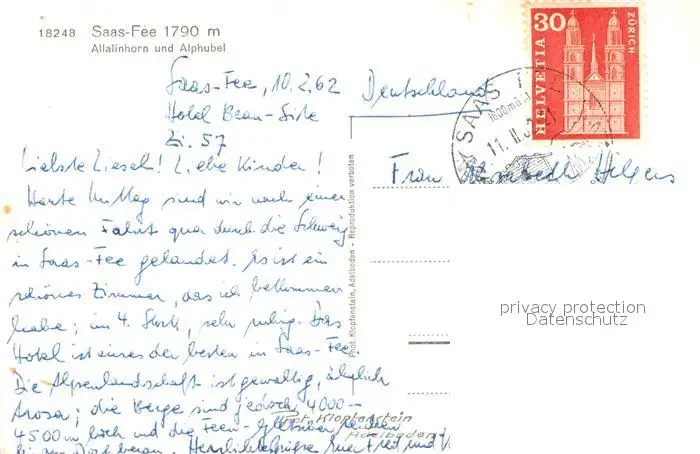 18248 Saas-Fee 1790 m
Allalinhorn und Alphubel
30
HELVETIA
ZÜRICH
SAAS
1800 m
11. II. 62
Saas-Fee, 10.2.62
Hotel Beau-Site
Zi. 57
Deutschland
Liebste Liesel! Liebe Kinder!
Heute Mittag sind wir nach einer
schönen Fahrt quer durch die Schweiz
in Saas-Fee gelandet. Es ist ein
schönes Zimmer, das ich bekommen
habe; im 4. Stock, sehr ruhig. Das
Hotel ist eines der besten in Saas-Fee.
Die Alpenlandschaft ist gewaltig, ähnlich
Arosa; die Berge sind jedoch 4000-
4500 m hoch und die Feen-Gletscher reichen
bis zum Dorf heran. Herzliche Grüße Euer Fred und V
Frau Elisabeth Helgers
Phot. Klopfenstein, Adelboden - Reproduktion verboten
Phot. Klopfenstein
Adelboden
privacy protection
Datenschutz